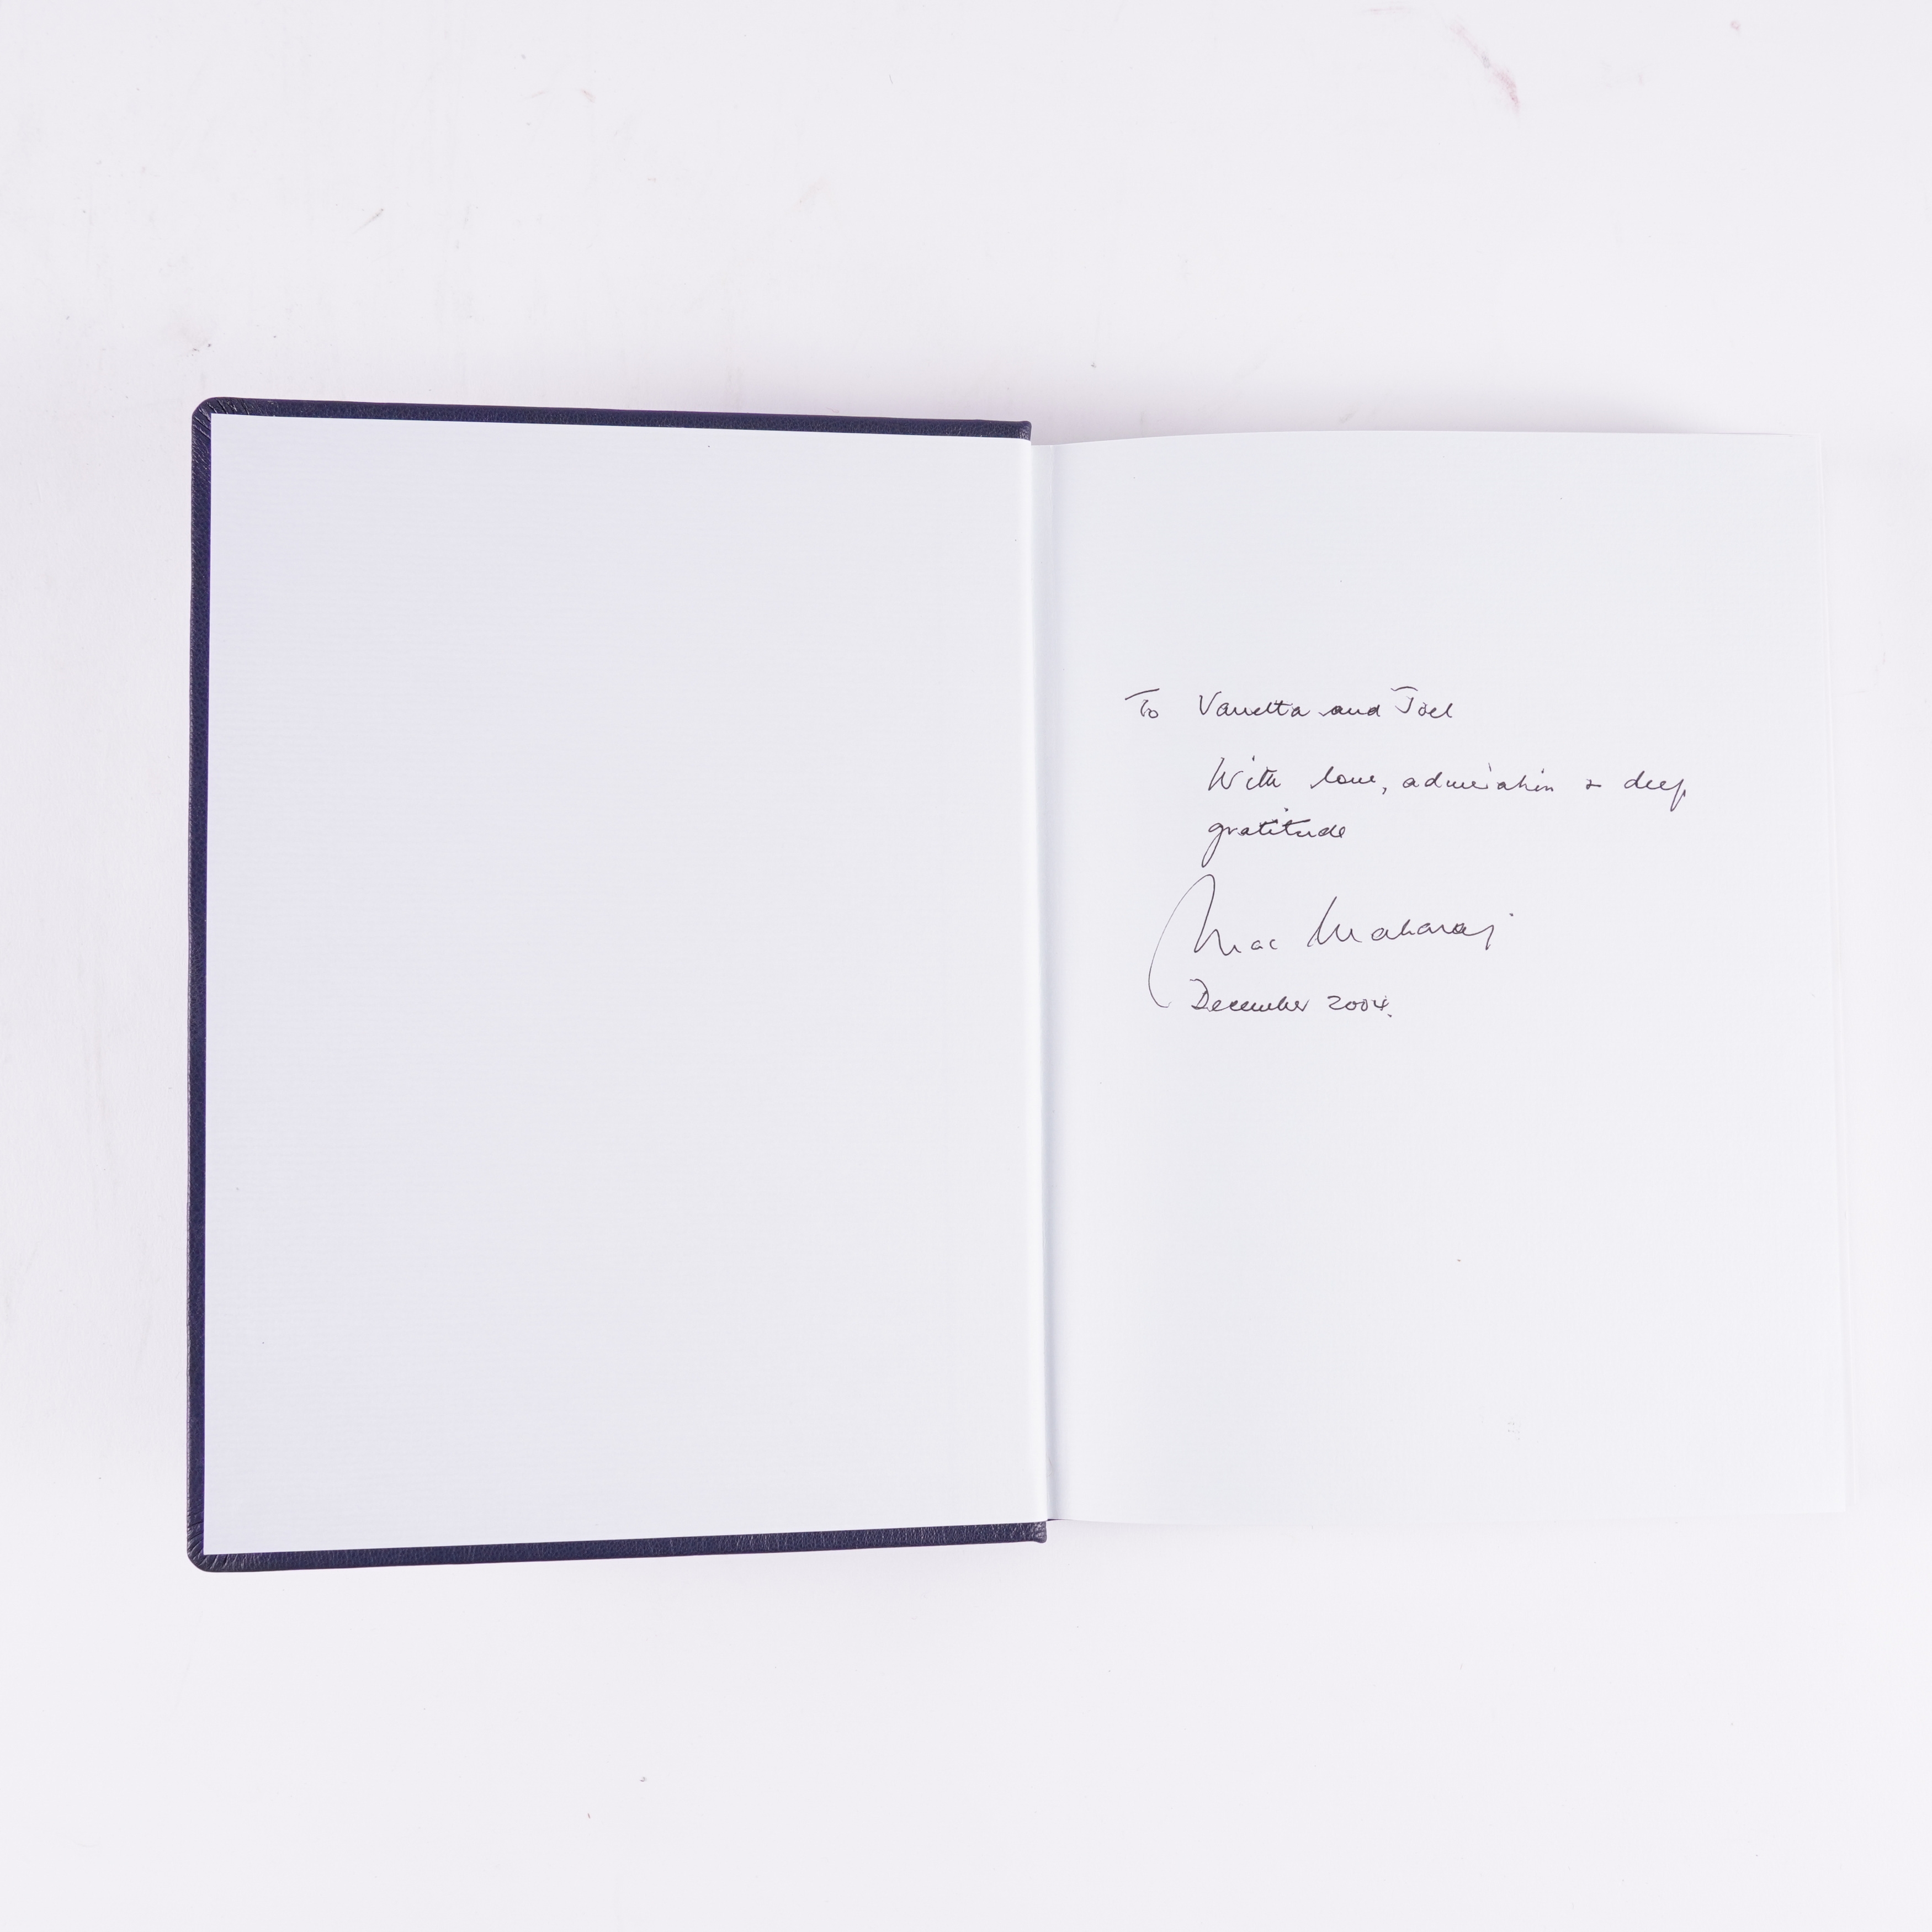 To Vanetta and Joel
With love, admiration & deep
gratitude
Mac Maharaj
December 2004.